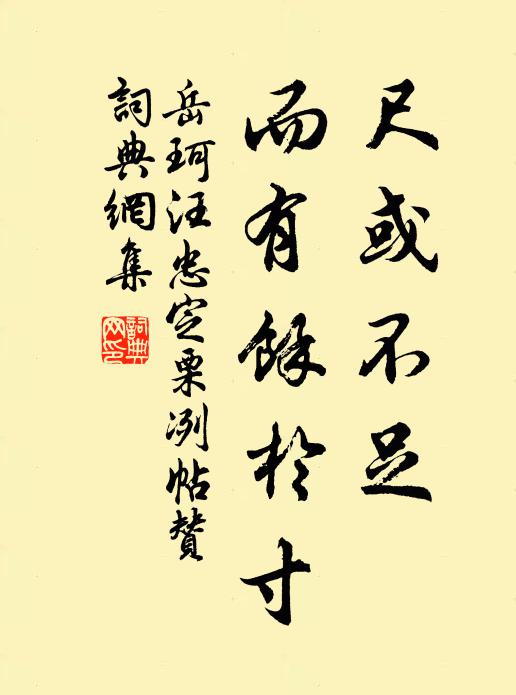 尺或不足
而有餘於寸
岳珂汪忠定栗冽帖贊
詞典網集
詞典網印